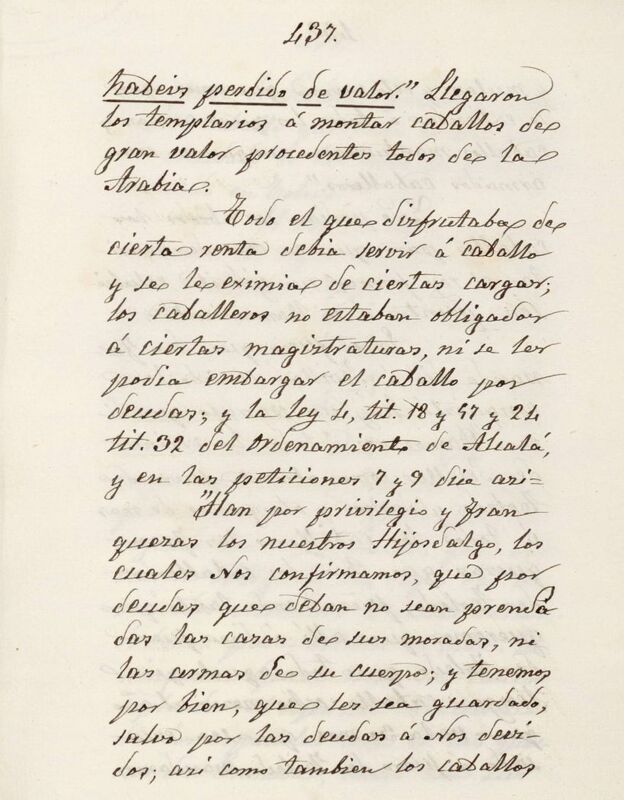 437.
habeis perdido de valor." Llegaron
los templarios á montar caballos de
gran valor procedentes todos de la
Arabia.
Todo el que disfrutaba de
cierta renta debia servir á caballo
y se le eximia de ciertas cargas;
los caballeros no estaban obligados
á ciertas magistraturas, ni se les
podia embargar el caballo por
deudas; y la ley 4, tit. 18 y 57 y 24
tit. 32 del Ordenamiento de Alcalá,
y en las peticiones 7 y 9 dice asi=
"Han por privilegio y fran-
quezas los nuestros Hijosdalgo, los
cuales Nos confirmamos, que por
deudas que deban no sean prenda
das las casas de sus moradas, ni
las armas de su cuerpo; y tenemos
por bien, que les sea guardado,
salvo por las deudas á Nos devi-
dos; asi como tambien los caballos